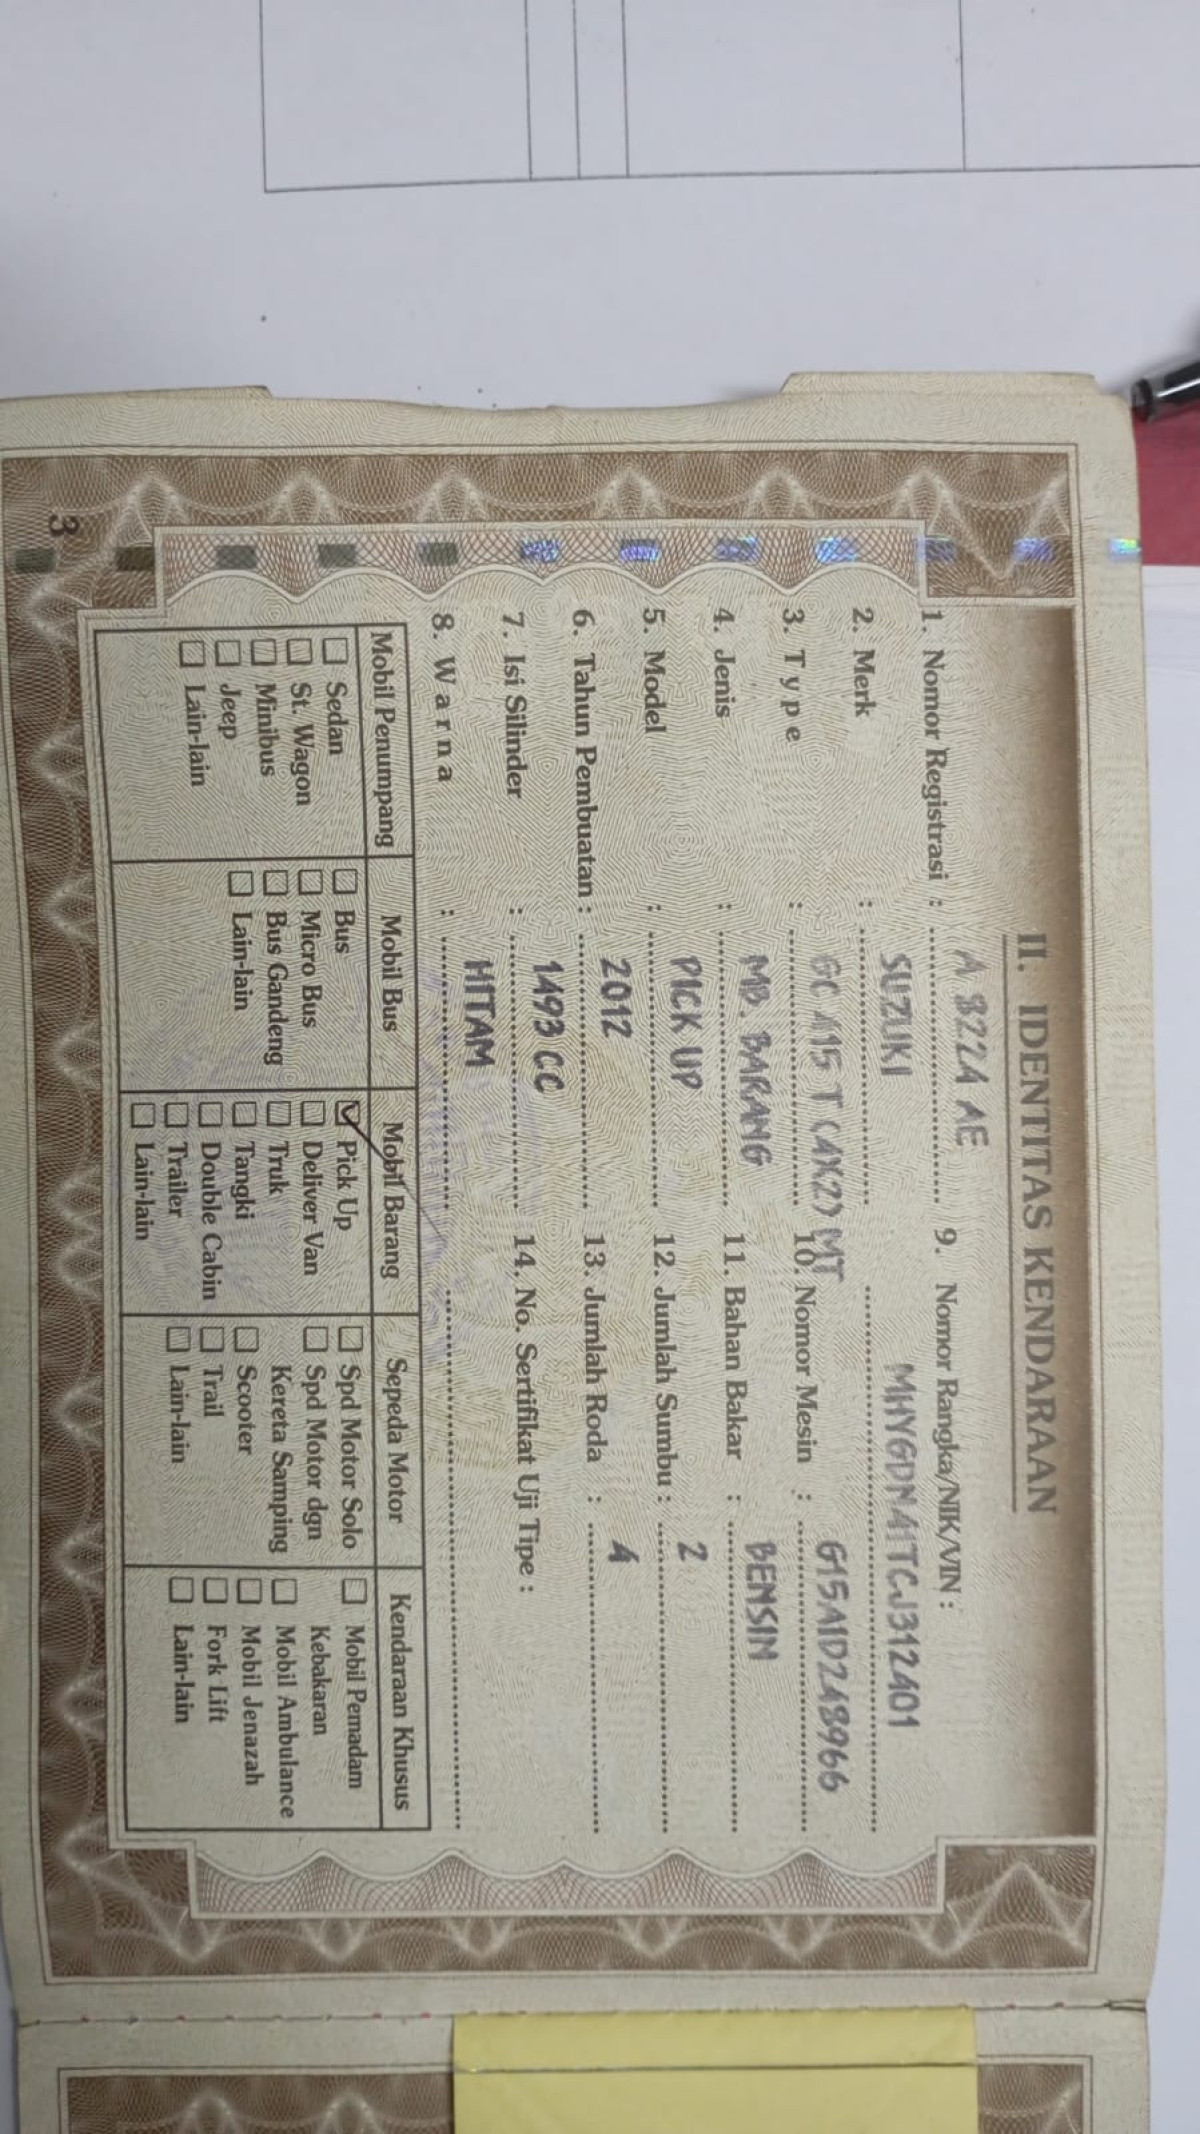 II. IDENTITAS KENDARAAN
1. Nomor Registrasi : A 8224 AE
2. Merk : SUZUKI
3. Type : GC 415 T (4X2) MT
4. Jenis : MB. BARANG
5. Model : PICK UP
6. Tahun Pembuatan : 2012
7. Isi Silinder : 1493 CC
8. Warna : HITAM
9. Nomor Rangka/NIK/VIN :
MHYGDN41TCJ312401
10. Nomor Mesin : G15AID248966
11. Bahan Bakar : BENSIN
12. Jumlah Sumbu : 2
13. Jumlah Roda : 4
14. No. Sertifikat Uji Tipe :
Mobil Penumpang
Sedan
St. Wagon
Minibus
Jeep
Lain-lain
Mobil Bus
Bus
Micro Bus
Bus Gandeng
Lain-lain
Mobil Barang
Pick Up
Deliver Van
Truk
Tangki
Double Cabin
Trailer
Lain-lain
Sepeda Motor
Spd Motor Solo
Spd Motor dgn
Kereta Samping
Scooter
Trail
Lain-lain
Kendaraan Khusus
Mobil Pemadam
Kebakaran
Mobil Ambulance
Mobil Jenazah
Fork Lift
Lain-lain
3